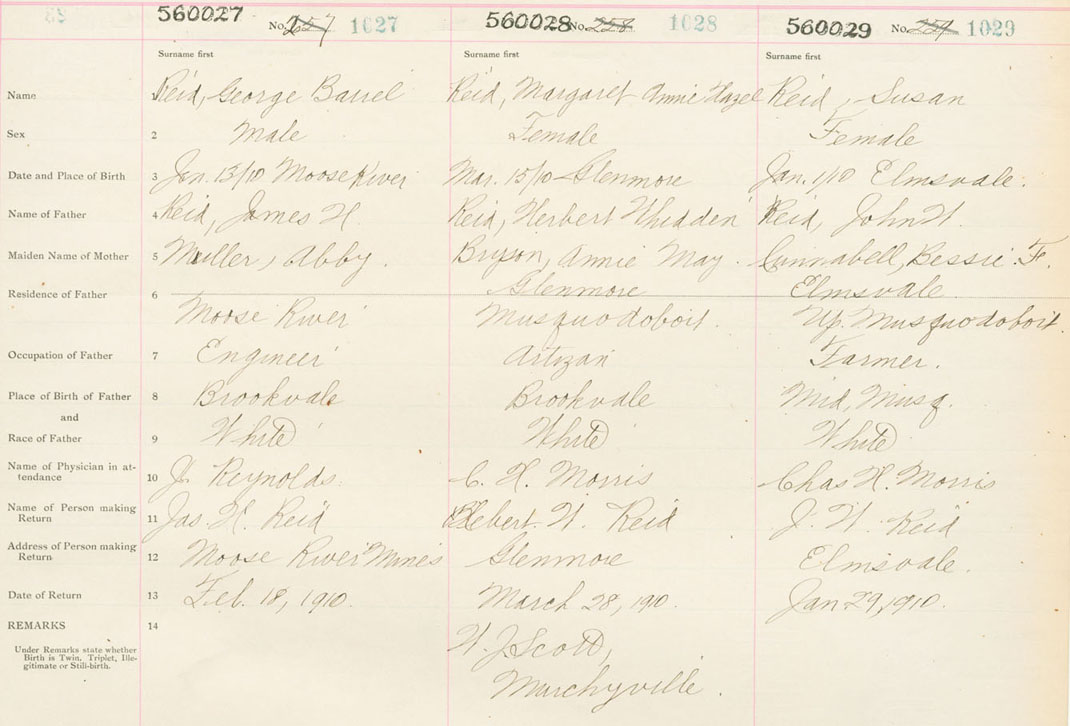 560027 No. 257 1027 560028 No. 258 1028 560029 No. 259 1029
Surname first Surname first Surname first
Name 1 Reid, George Barrel Reid, Margaret Annie Hazel Reid, Susan
Sex 2 Male Female Female
Date and Place of Birth 3 Jan. 13/10 Moose River Mar. 15/10 Glenmore Jan. 1/10 Elmsvale.
Name of Father 4 Reid, James H. Reid, Herbert Whidden Reid, John W.
Maiden Name of Mother 5 Muller, Abby. Bryson, Annie May. Cunnabell, Bessie. F.
Glenmore Elmsvale.
Residence of Father 6
Moose River Musquodoboit. Up. Musquodoboit.
Occupation of Father 7 Engineer Artizan Farmer.
Place of Birth of Father 8 Brookvale Brookvale Mid, Musq.
and
Race of Father 9 White White White
Name of Physician in at-
tendance 10 J. Reynolds. C. H. Morris Chas H. Morris
Name of Person making
Return 11 Jas. H. Reid Hebert. W. Reid J. W. Reid
Address of Person making
Return 12 Moose River Mines Glenmore Elmsvale.
Date of Return 13 Feb. 18, 1910. March 28, 1910. Jan 29, 1910.
REMARKS 14
W. J. Scott,
Under Remarks state whether
Birth is Twin, Triplet, Ille-
gitimate or Still-birth.
Murchyville.